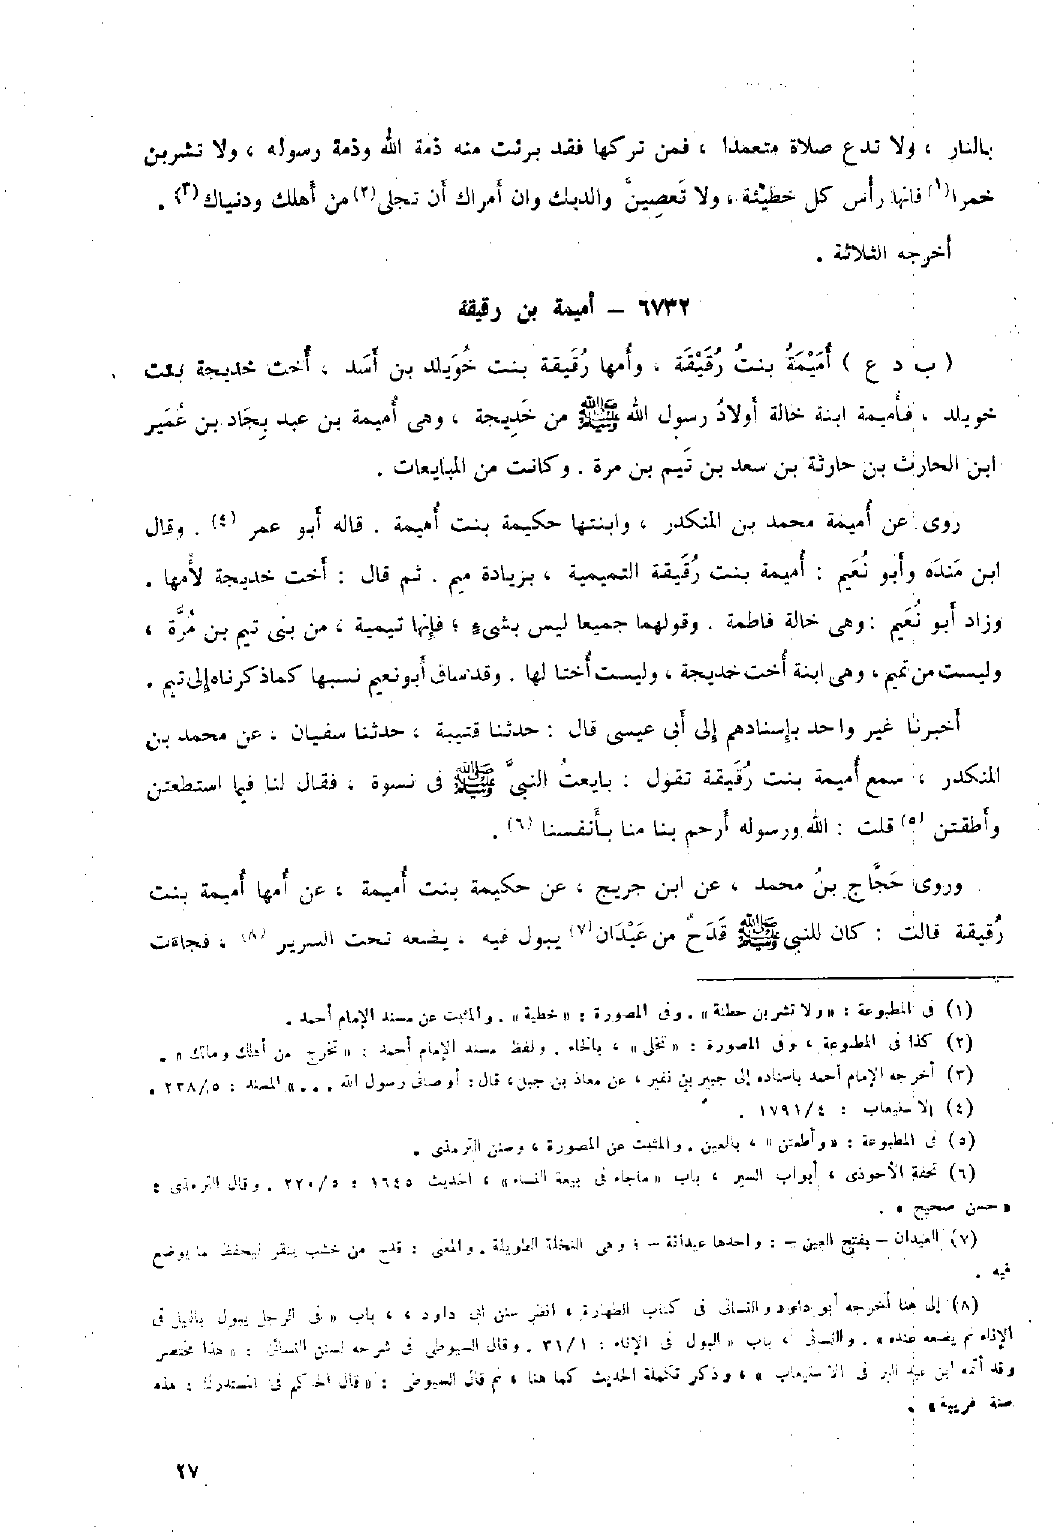 بالنار ، ولا تدع صلاة متعمدا ، فمن تركها فقد برئت منه ذمة الله وذمة رسوله ، ولا تشربن
خمرا (١) فانها رأس كل خطيئة ، ولا تَعصِينَّ والديك وان أمراك أن تجلى (٢) من أهلك ودنياك (٣) .
أخرجه الثلاثة .
٦٧٣٢ – أميمة بن رقيقة
( ب د ع ) أُمَيْمَةُ بنتُ رُقَيْقَة ، وأُمها رُقَيقة بنت خُوَيلد بن أَسَد ، أُخت خديجة بنت
خويلد ، فأُميمة ابنة خالة أَولادُ رسول الله ﷺ من خَدِيجة ، وهى أُميمة بن عبد بِجَاد بن عُمَير
ابن الحارث بن حارثة بن سعد بن تَيم بن مرة . وكانت من المبايعات .
روى عن أُميمة محمد بن المنكدر ، وابنتها حكيمة بنت أُميمة . قاله أَبو عمر (٤) . وقال
ابن مَندَه وأَبو نُعَيم : أُميمة بنت رُقَيقة التميمية ، بزيادة ميم . ثم قال : أُخت خديجة لأُمها .
وزاد أَبو نُعَيم : وهى خالة فاطمة . وقولهما جميعا ليس بشىءٍ ؛ فإنها تيمية ، من بنى تيم بن مُرَّة ،
وليست من تميم ، وهى ابنة أُخت خديجة ، وليست أُختا لها . وقد ساق أَبو نعيم نسبها كما ذكرناه إلى تيم .
أَخبرنا غير واحد بإسنادهم إلى أَبى عيسى قال : حدثنا قتيبة ، حدثنا سفيان ، عن محمد بن
المنكدر ، سمع أُميمة بنت رُقَيقة تقول : بايعتُ النبىَّ ﷺ فى نسوة ، فقال لنا فيما استطعتن
وأَطقتن (٥) قلت : الله ورسوله أَرحم بنا منا بأَنفسنا (٦) .
وروى حَجَّاج بنُ محمد ، عن ابن جريج ، عن حكيمة بنت أُميمة ، عن أُمها أُميمة بنت
رُقيقة قالت : كان للنبى ﷺ قَدَحٌ من عَيْدَان (٧) يبول فيه ، يضعه تحت السرير (٨) ، فجاءَت
(١) فى المطبوعة : « ولا تشربن حطنة » . وفى المصورة : « خطية » . والمثبت عن مسند الإمام أحمد .
(٢) كذا فى المطبوعة ، وفى المصورة : « تخلى » ، بالخاء . ولفظ مسند الإمام أحمد : « تخرج من أهلك ومالك » .
(٣) أخرجه الإمام أحمد باسناده إلى جبير بن نفير ، عن معاذ بن جبل ، قال : أوصانى رسول الله ... » المسند : ٢٣٨/٥ .
(٤) الاستيعاب : ١٧٩١/٤ .
(٥) فى المطبوعة : « وأطعتن » ، بالعين . والمثبت عن المصورة ، وسنن الترمذى .
(٦) تحفة الأحوذى ، أبواب السير ، باب « ماجاء فى بيعة النساء » ، الحديث ١٦٤٥ : ٢٢٠/٥ . وقال الترمذى :
« حسن صحيح » .
(٧) العيدان – بفتح العين – : واحدها عيدانة – ؛ وهى النخلة الطويلة . والمعنى : قدح من خشب ينقر ليحفظ ما يوضع
فيه .
(٨) إلى هنا أخرجه أبو داود والنسائى فى كتاب الطهارة ، انظر سنن أبى داود ، ، باب « فى الرجل يبول بالليل فى
الإناء ثم يضعه عنده » . والنسائى ، باب « البول فى الإناء : ٣١/١ . وقال السيوطى فى شرحه لسنن النسائى : « هذا مختصر
وقد أتمه ابن عبد البر فى الاستيعاب » ، وذكر تكملة الحديث كما هنا ، ثم قال السيوطى : « قال الحاكم فى المستدرك : هذه
سنة غريبة » .
٢٧